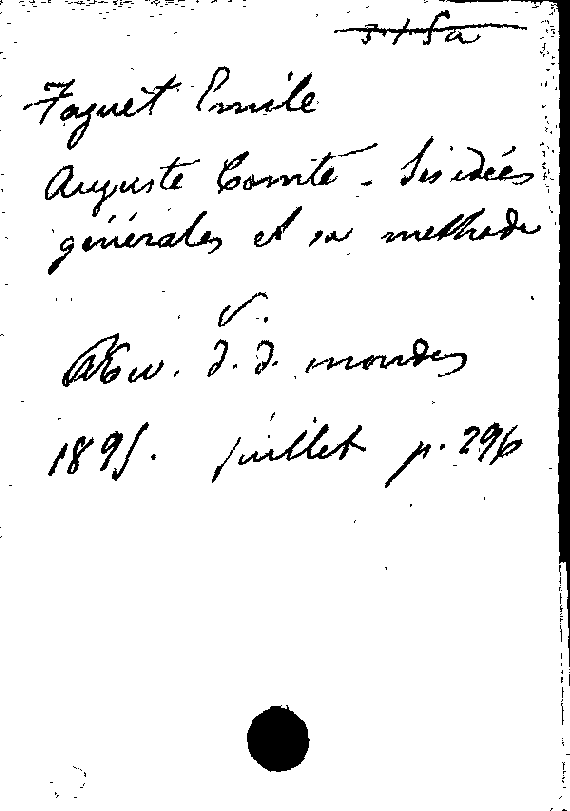 Faguet Emile
Auguste Comte - Ses idées
générales et sa methode
v.
Rev. d. d. mondes
1895. juillet p. 296